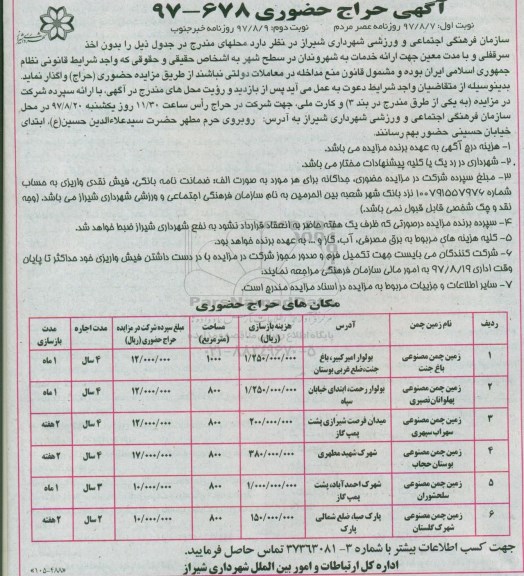 آگهی حراج حضوری ۶۷۸-۹۷
نوبت اول: ۹۷/۸/۷ روزنامه عصر مردم نوبت دوم: ۹۷/۸/۹ روزنامه خبرجنوب
سازمان فرهنگی اجتماعی و ورزشی شهرداری شیراز در نظر دارد محلهای مندرج در جدول ذیل را بدون اخذ
سرقفلی و با مدت معین جهت ارائه خدمات به شهروندان در سطح شهر به اشخاص حقیقی و حقوقی که واجد شرایط قانونی نظام
جمهوری اسلامی ایران بوده و مشمول قانون منع مداخله در معاملات دولتی نباشند از طریق مزایده حضوری (حراج) واگذار نماید.
بدینوسیله از متقاضیان واجد شرایط دعوت به عمل می آید پس از بازدید و رؤیت محل های مندرج در آگهی، با ارائه سپرده شرکت
در مزایده (به یکی از طرق مندرج در بند ۳) و کارت ملی، جهت شرکت در حراج رأس ساعت ۱۱/۳۰ روز یکشنبه ۹۷/۸/۲۰ در محل
سازمان فرهنگی اجتماعی و ورزشی شهرداری شیراز به آدرس: روبروی حرم مطهر حضرت سیدعلاءالدین حسین(ع)، ابتدای
خیابان حسینی حضور بهم رسانند.
۱- هزینه درج آگهی به عهده برنده مزایده می باشد.
۲- شهرداری در رد یک یا کلیه پیشنهادات مختار می باشد.
۳- مبلغ سپرده شرکت در مزایده حضوری، جداگانه برای هر مورد به صورت الف: ضمانت نامه بانکی، فیش نقدی واریزی به حساب
شماره ۱۰۰۷۹۱۵۵۷۹۷۶ نزد بانک شهر شعبه بین الحرمین به نام سازمان فرهنگی اجتماعی و ورزشی شهرداری شیراز می باشد. (وجه
نقد و چک شخصی قابل قبول نمی باشد.)
۴- سپرده برنده مزایده درصورتی که ظرف یک هفته حاضر به انعقاد قرارداد نشود به نفع شهرداری شیراز ضبط خواهد شد.
۵- کلیه هزینه های مربوط به برق مصرفی، آب، گاز و ... به عهده برنده خواهد بود.
۶- شرکت کنندگان می بایست جهت تکمیل فرم و صدور مجوز شرکت در مزایده با در دست داشتن فیش واریزی خود حداکثر تا پایان
وقت اداری ۹۷/۸/۱۹ به امور مالی سازمان فرهنگی مراجعه نمایند.
۷- سایر اطلاعات و جزییات مربوط به مزایده در اسناد مزایده مندرج است.
مکان های حراج حضوری
ردیف نام زمین چمن آدرس هزینه بازسازی (ریال) مساحت (مترمربع) مبلغ سپرده شرکت در مزایده حراج حضوری (ریال) مدت اجاره مدت بازسازی
۱ زمین چمن مصنوعی باغ جنت بولوار امیرکبیر، باغ جنت، ضلع غربی بوستان ۱/۲۵۰/۰۰۰/۰۰۰ ۱۰۰۰ ۱۲/۰۰۰/۰۰۰ ۴ سال ۱ ماه
۲ زمین چمن مصنوعی پهلوانان نصیری بولوار رحمت، ابتدای خیابان سپاه ۱/۲۵۰/۰۰۰/۰۰۰ ۸۰۰ ۱۲/۰۰۰/۰۰۰ ۴ سال ۱ ماه
۳ زمین چمن مصنوعی سهراب سپهری میدان فرصت شیرازی پشت پمپ گاز ۲۰۰/۰۰۰/۰۰۰ ۸۰۰ ۱۲/۰۰۰/۰۰۰ ۴ سال ۲ هفته
۴ زمین چمن مصنوعی بوستان حجاب شهرک شهید مطهری ۳۸۰/۰۰۰/۰۰۰ ۸۰۰ ۱۷/۰۰۰/۰۰۰ ۴ سال ۲ هفته
۵ زمین چمن مصنوعی سلحشوران شهرک احمدآباد، پشت پمپ گاز ۱/۰۰۰/۰۰۰/۰۰۰ ۸۰۰ ۱۰/۰۰۰/۰۰۰ ۳ سال ۱ ماه
۶ زمین چمن مصنوعی شهرک گلستان پارک صبا، ضلع شمالی پارک ۱۵۰/۰۰۰/۰۰۰ ۸۰۰ ۱۰/۰۰۰/۰۰۰ ۲ سال ۲ هفته
جهت کسب اطلاعات بیشتر با شماره ۳-۳۷۳۶۳۰۸۱ تماس حاصل فرمایید.
اداره کل ارتباطات و امور بین الملل شهرداری شیراز
«۱۰۵-۲۸۸»